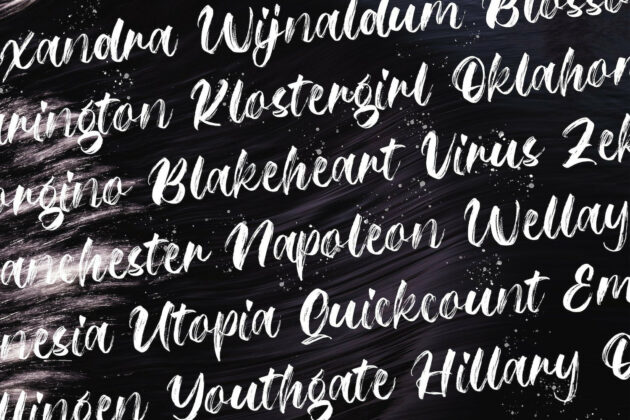 xandra Wijnaldum Blosso
arington Klostergirl Oklahom
orgino Blakeheart Virus Zek
anchester Napoleon Wellay
nesia Utopia Quickcount Em
llingen Youthgate Hillary O